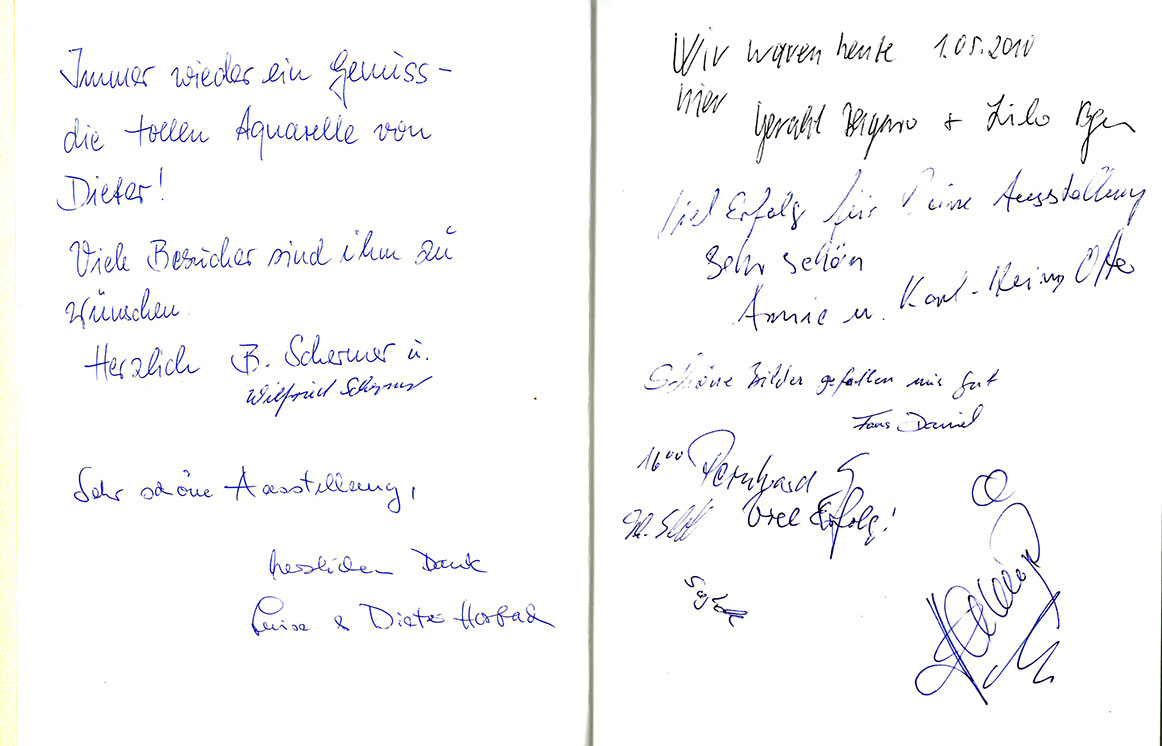 Immer wieder ein Genuss -
die tollen Aquarelle von
Dieter!
Viele Besucher sind ihm zu
wünschen.
Herzlich B. Schermer u.
Wilfried Schermer
Sehr schöne Ausstellung,
herzlichen Dank
Luise & Dieter
Wir waren heute 1.05.2010
hier
+ Lilo
Viel Erfolg für Deine Ausstellung
Sehr schön
Annie u. Karl-Heinz Otto
Schöne Bilder gefallen mir gut
Daniel
16⁰⁰
Viel Erfolg!